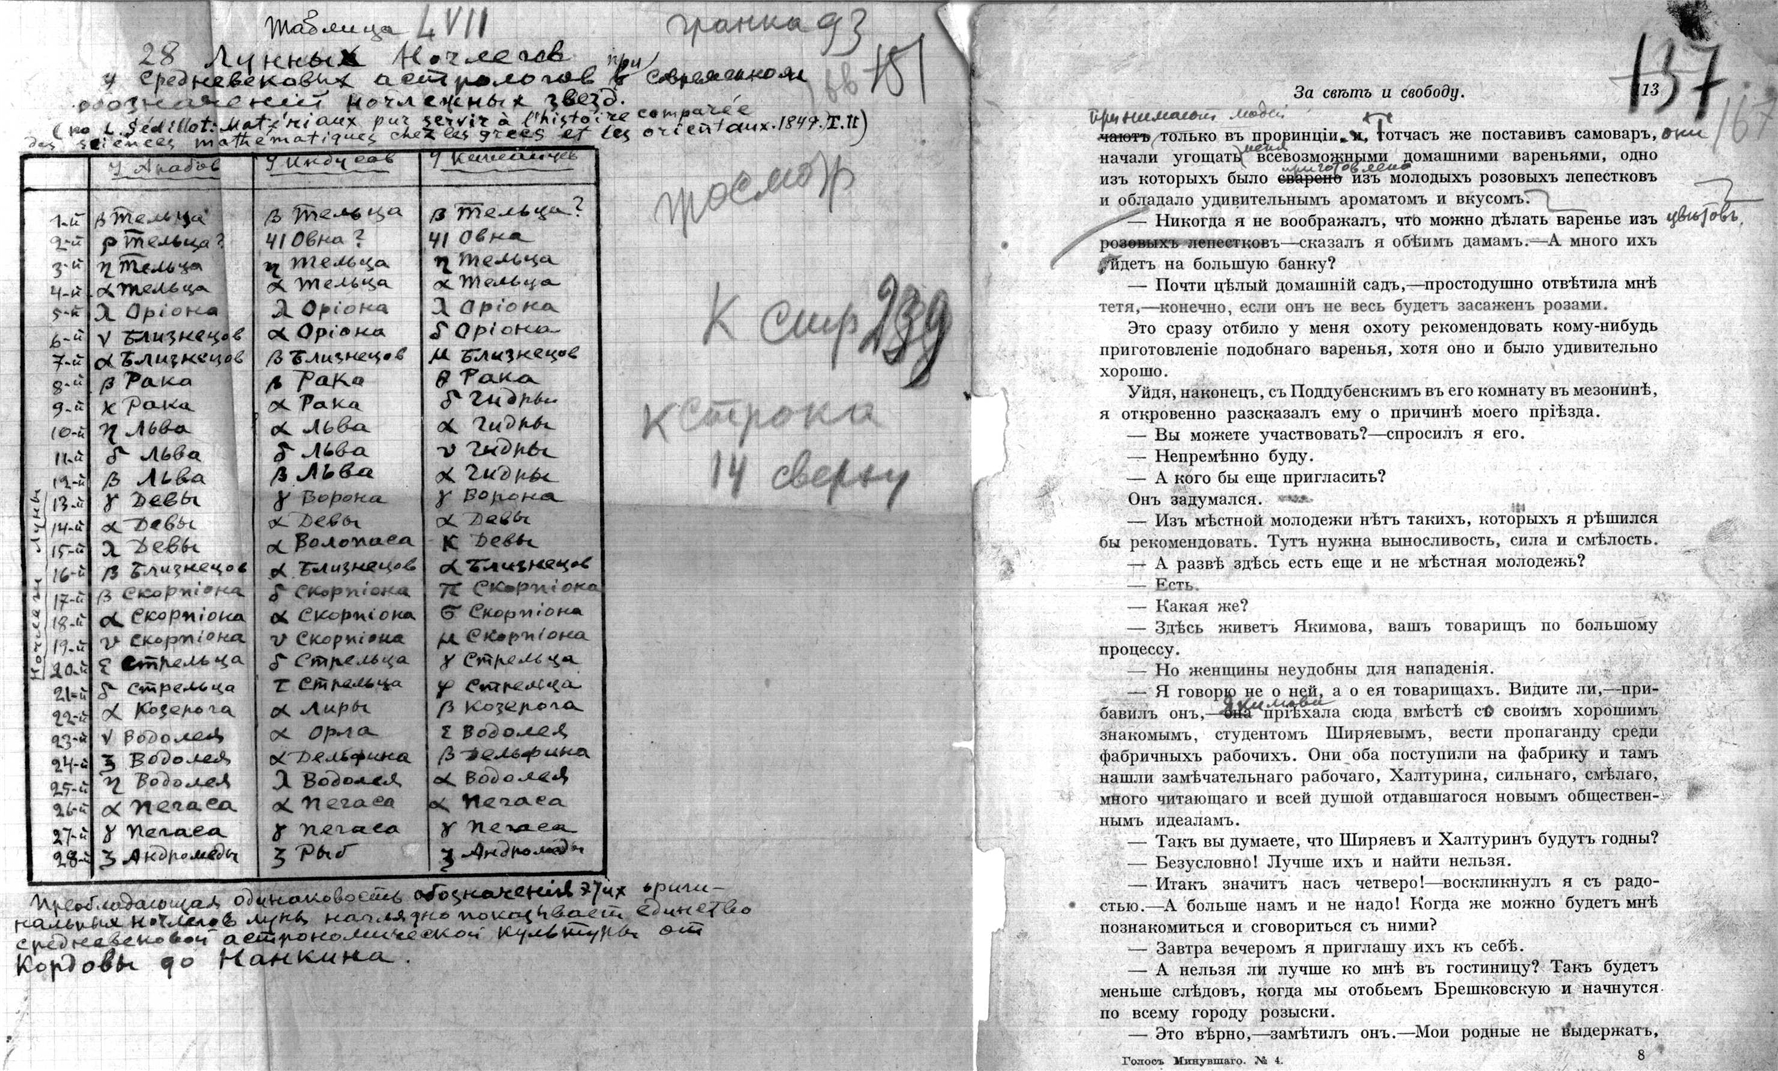 Таблица LVII
гранка 93
28 Лунных Ночлегов
у средневековых астрологов при современном
151
обозначении ночлежных звезд.
(по L. Sédillot: Matériaux pur servir à l'histoire comparée
des sciences mathématiques chez les grecs et les orientaux. 1849. T. II)
У Арабов У Индусов У Китайцев
1-й β Тельца β Тельца β Тельца?
2-й ρ Тельца? 41 Овна? 41 Овна
3-й η Тельца η Тельца η Тельца
4-й α Тельца α Тельца α Тельца
5-й λ Оріона λ Оріона λ Оріона
6-й ν Близнецов α Оріона δ Оріона
7-й α Близнецов β Близнецов μ Близнецов
8-й β Рака β Рака θ Рака
9-й κ Рака α Рака δ Гидры
10-й η Льва α Льва α Гидры
11-й δ Льва δ Льва ν Гидры
12-й β Льва β Льва α Гидры
13-й γ Девы γ Ворона γ Ворона
14-й α Девы α Девы α Девы
15-й λ Девы α Волопаса κ Девы
16-й β Близнецов α Близнецов α Близнецов
17-й β Скорпіона δ Скорпіона π Скорпіона
18-й α Скорпіона α Скорпіона σ Скорпіона
19-й ν Скорпіона ν Скорпіона μ Скорпіона
20-й ε Стрельца δ Стрельца γ Стрельца
21-й δ Стрельца τ Стрельца φ Стрельца
22-й α Козерога α Лиры β Козерога
23-й ν Водолея α Орла ε Водолея
24-й ξ Водолея α Дельфина β Дельфина
25-й η Водолея λ Водолея α Водолея
26-й α Пегаса α Пегаса α Пегаса
27-й γ Пегаса γ Пегаса γ Пегаса
28-й ξ Андромеды ξ Рыб ξ Андромеды
Ночлеги Луны
Преобладающая одинаковость обозначенія этих ориги-
нальных ночлегов луны наглядно показывает единство
средневековой астрономической культуры от
Кордовы до Нанкина.
просмотр
К стр 239
К строка
14 сверху
За свѣтъ и свободу. 113
137
167
принимаютъ людей
чаютъ только въ провинціи. и, Тотчасъ же поставивъ самоваръ, они
меня
начали угощать всевозможными домашними вареньями, одно
приготовлено
изъ которыхъ было сварено изъ молодыхъ розовыхъ лепестковъ
и обладало удивительнымъ ароматомъ и вкусомъ.
— Никогда я не воображалъ, что можно дѣлать варенье изъ цвѣтовъ,
розовыхъ лепестковъ—сказалъ я обѣимъ дамамъ.—А много ихъ
уйдетъ на большую банку?
— Почти цѣлый домашній садъ,—простодушно отвѣтила мнѣ
тетя,—конечно, если онъ не весь будетъ засаженъ розами.
Это сразу отбило у меня охоту рекомендовать кому-нибудь
приготовленіе подобнаго варенья, хотя оно и было удивительно
хорошо.
Уйдя, наконецъ, съ Поддубенскимъ въ его комнату въ мезонинѣ,
я откровенно разсказалъ ему о причинѣ моего пріѣзда.
— Вы можете участвовать?—спросилъ я его.
— Непремѣнно буду.
— А кого бы еще пригласить?
Онъ задумался.
— Изъ мѣстной молодежи нѣтъ такихъ, которыхъ я рѣшился
бы рекомендовать. Тутъ нужна выносливость, сила и смѣлость.
— А развѣ здѣсь есть еще и не мѣстная молодежь?
— Есть.
— Какая же?
— Здѣсь живетъ Якимова, вашъ товарищъ по большому
процессу.
— Но женщины неудобны для нападенія.
— Я говорю не о ней, а о ея товарищахъ. Видите ли,—при-
Якимова
бавилъ онъ,—она пріѣхала сюда вмѣстѣ со своимъ хорошимъ
знакомымъ, студентомъ Ширяевымъ, вести пропаганду среди
фабричныхъ рабочихъ. Они оба поступили на фабрику и тамъ
нашли замѣчательнаго рабочаго, Халтурина, сильнаго, смѣлаго,
много читающаго и всей душой отдавшагося новымъ обществен-
нымъ идеаламъ.
— Такъ вы думаете, что Ширяевъ и Халтуринъ будутъ годны?
— Безусловно! Лучше ихъ и найти нельзя.
— Итакъ значитъ насъ четверо!—воскликнулъ я съ радо-
стью.—А больше намъ и не надо! Когда же можно будетъ мнѣ
познакомиться и сговориться съ ними?
— Завтра вечеромъ я приглашу ихъ къ себѣ.
— А нельзя ли лучше ко мнѣ въ гостиницу? Такъ будетъ
меньше слѣдовъ, когда мы отобьемъ Брешковскую и начнутся
по всему городу розыски.
— Это вѣрно,—замѣтилъ онъ.—Мои родные не выдержатъ,
Голосъ Минувшаго. № 4. 8